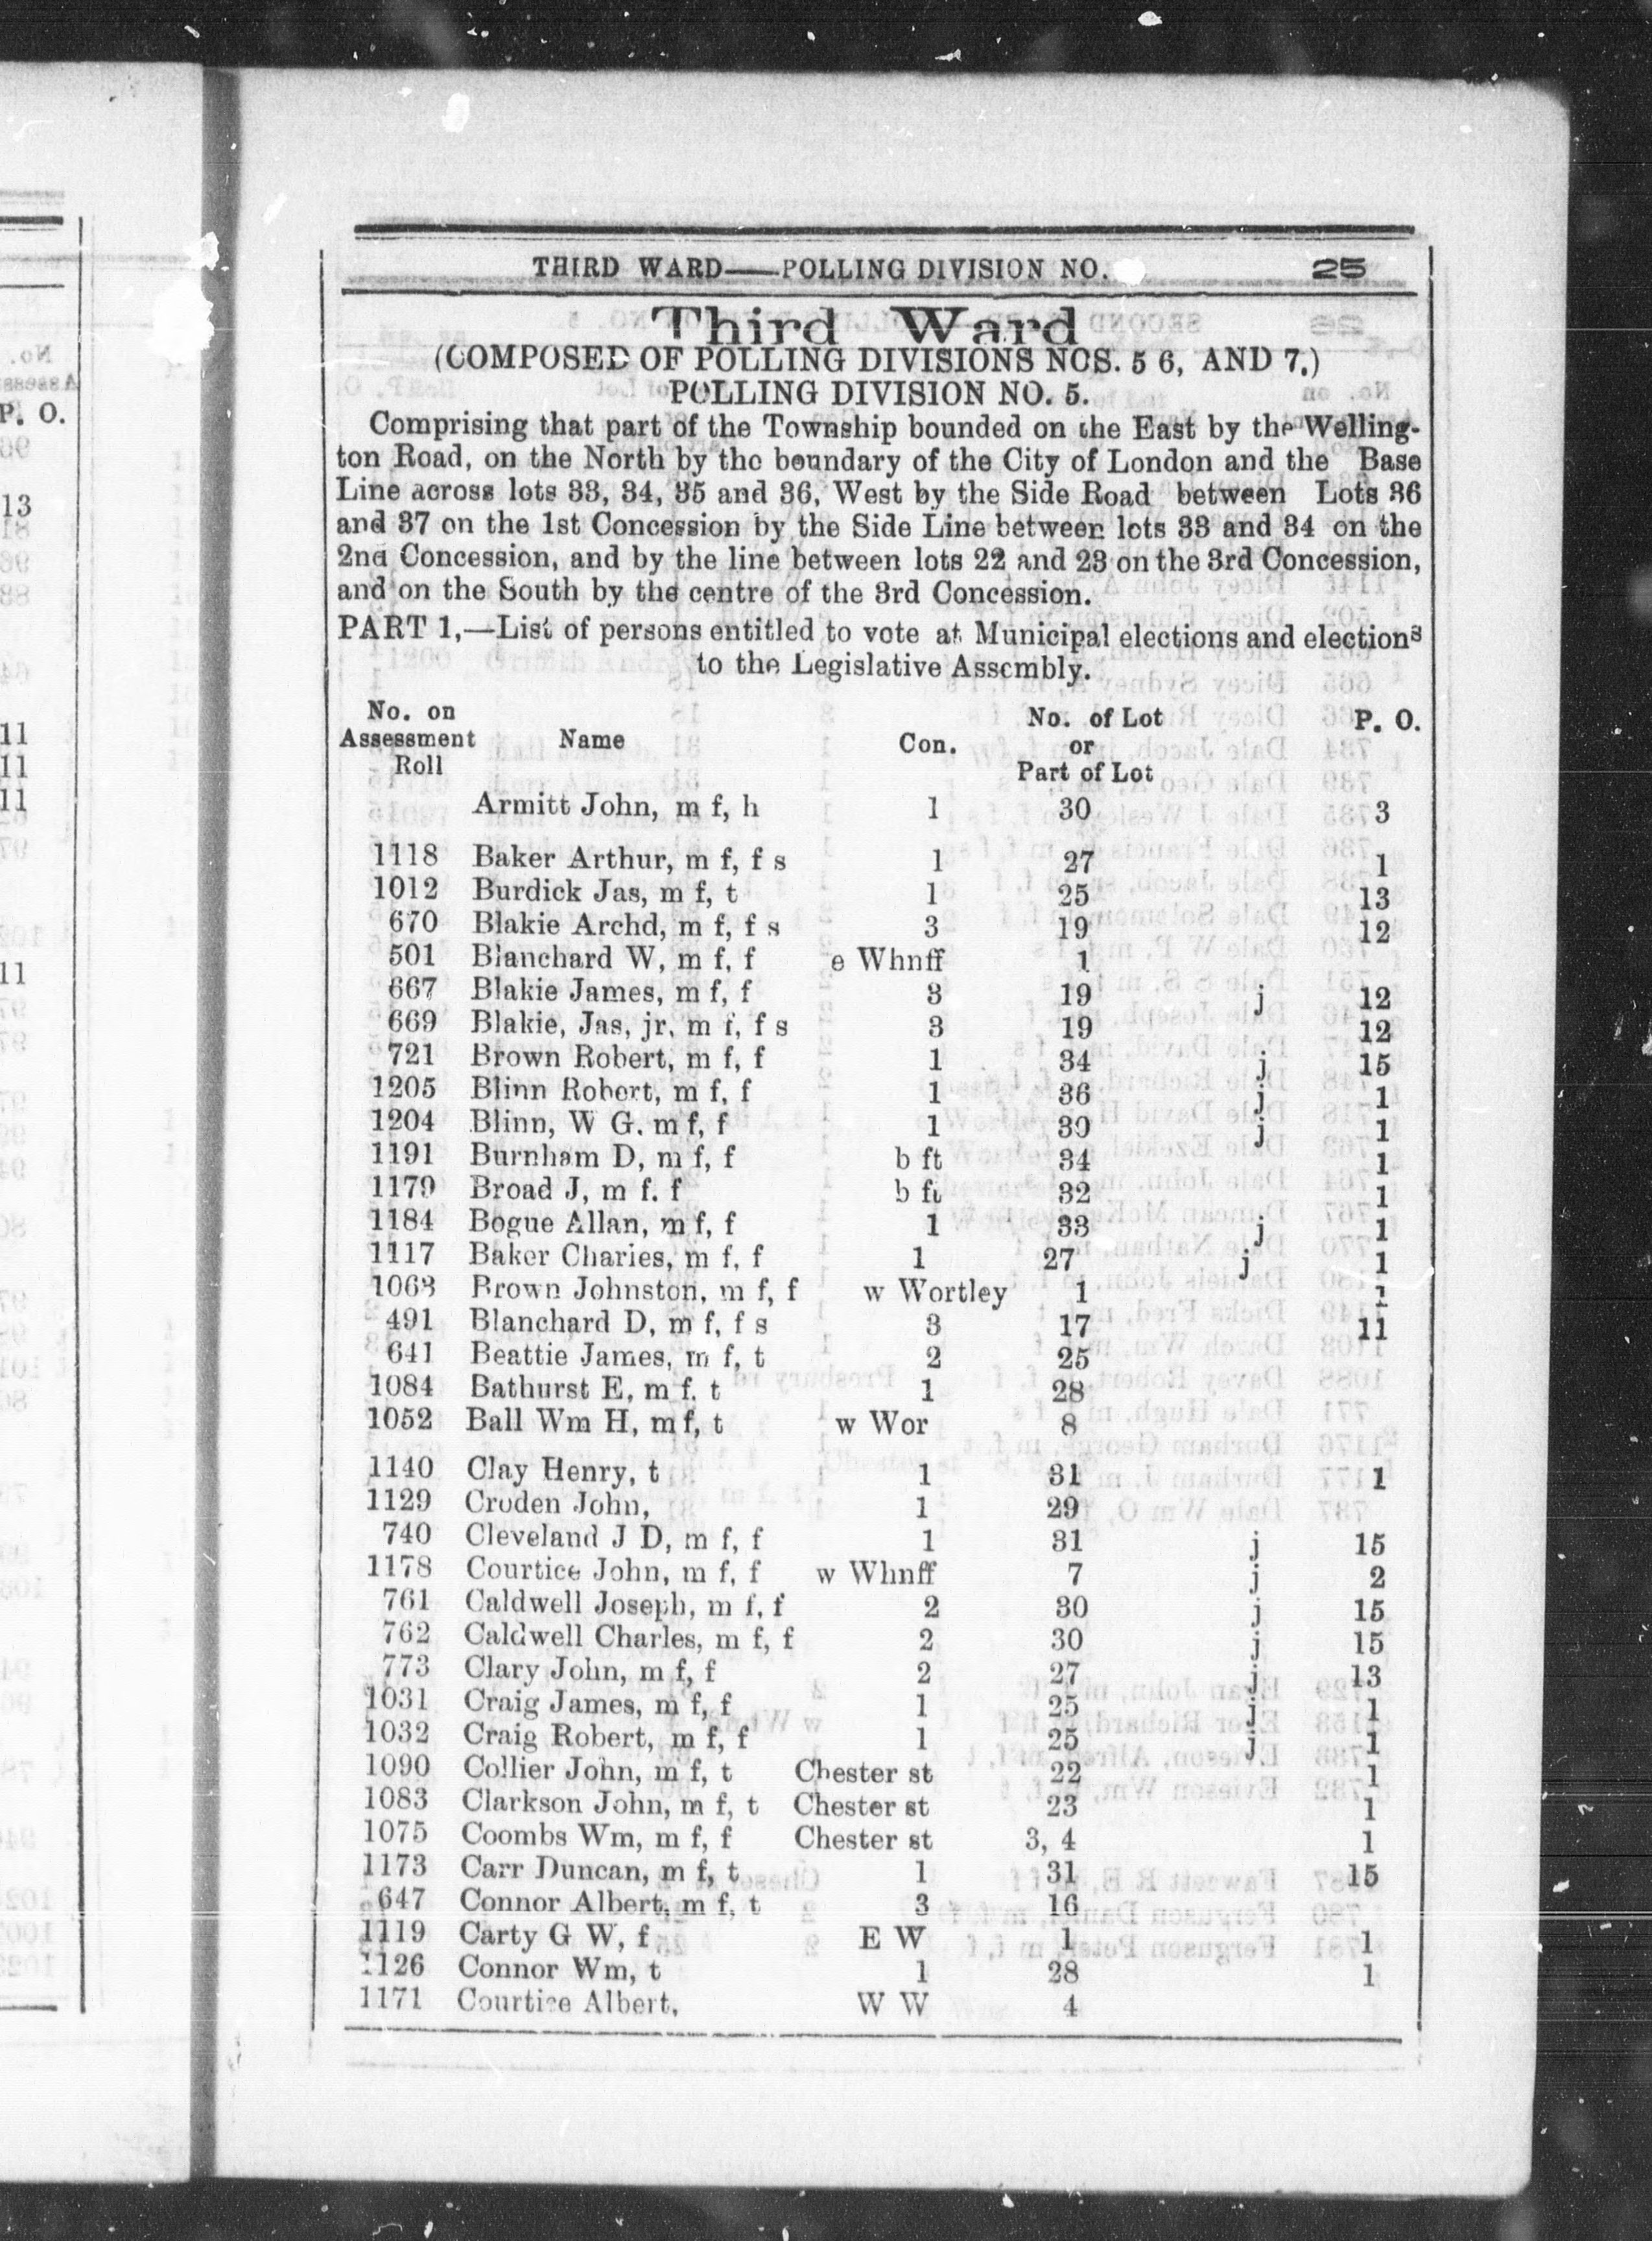 THIRD WARD——POLLING DIVISION NO. 25
Third Ward
(COMPOSED OF POLLING DIVISIONS NOS. 5 6, AND 7.)
POLLING DIVISION NO. 5.
Comprising that part of the Township bounded on the East by the Welling-
ton Road, on the North by the boundary of the City of London and the Base
Line across lots 33, 34, 35 and 36, West by the Side Road between Lots 36
and 37 on the 1st Concession by the Side Line between lots 33 and 34 on the
2nd Concession, and by the line between lots 22 and 23 on the 3rd Concession,
and on the South by the centre of the 3rd Concession.
PART 1,—List of persons entitled to vote at Municipal elections and elections
to the Legislative Assembly.
No. on Assessment Roll Name Con. No. of Lot or Part of Lot P. O.
Armitt John, m f, h 1 30 3
1118 Baker Arthur, m f, f s 1 27 1
1012 Burdick Jas, m f, t 1 25 13
670 Blakie Archd, m f, f s 3 19 12
501 Blanchard W, m f, f e Whnff 1
667 Blakie James, m f, f 3 19 j 12
669 Blakie, Jas, jr, m f, f s 3 19 12
721 Brown Robert, m f, f 1 34 j 15
1205 Blinn Robert, m f, f 1 36 j 1
1204 Blinn, W G. m f, f 1 30 j 1
1191 Burnham D, m f, f b ft 34 1
1179 Broad J, m f. f b ft 32 1
1184 Bogue Allan, m f, f 1 33 j 1
1117 Baker Charies, m f, f 1 27 j 1
1063 Brown Johnston, m f, f w Wortley 1 1
491 Blanchard D, m f, f s 3 17 11
641 Beattie James, m f, t 2 25
1084 Bathurst E, m f. t 1 28
1052 Ball Wm H, m f, t w Wor 8
1140 Clay Henry, t 1 31 1
1129 Croden John, 1 29
740 Cleveland J D, m f, f 1 31 j 15
1178 Courtice John, m f, f w Whnff 7 j 2
761 Caldwell Joseph, m f, f 2 30 j 15
762 Caldwell Charles, m f, f 2 30 j 15
773 Clary John, m f, f 2 27 j 13
1031 Craig James, m f, f 1 25 j 1
1032 Craig Robert, m f, f 1 25 j 1
1090 Collier John, m f, t Chester st 22 1
1083 Clarkson John, m f, t Chester st 23 1
1075 Coombs Wm, m f, f Chester st 3, 4 1
1173 Carr Duncan, m f, t 1 31 15
647 Connor Albert, m f, t 3 16
1119 Carty G W, f E W 1 1
1126 Connor Wm, t 1 28 1
1171 Courtice Albert, W W 4